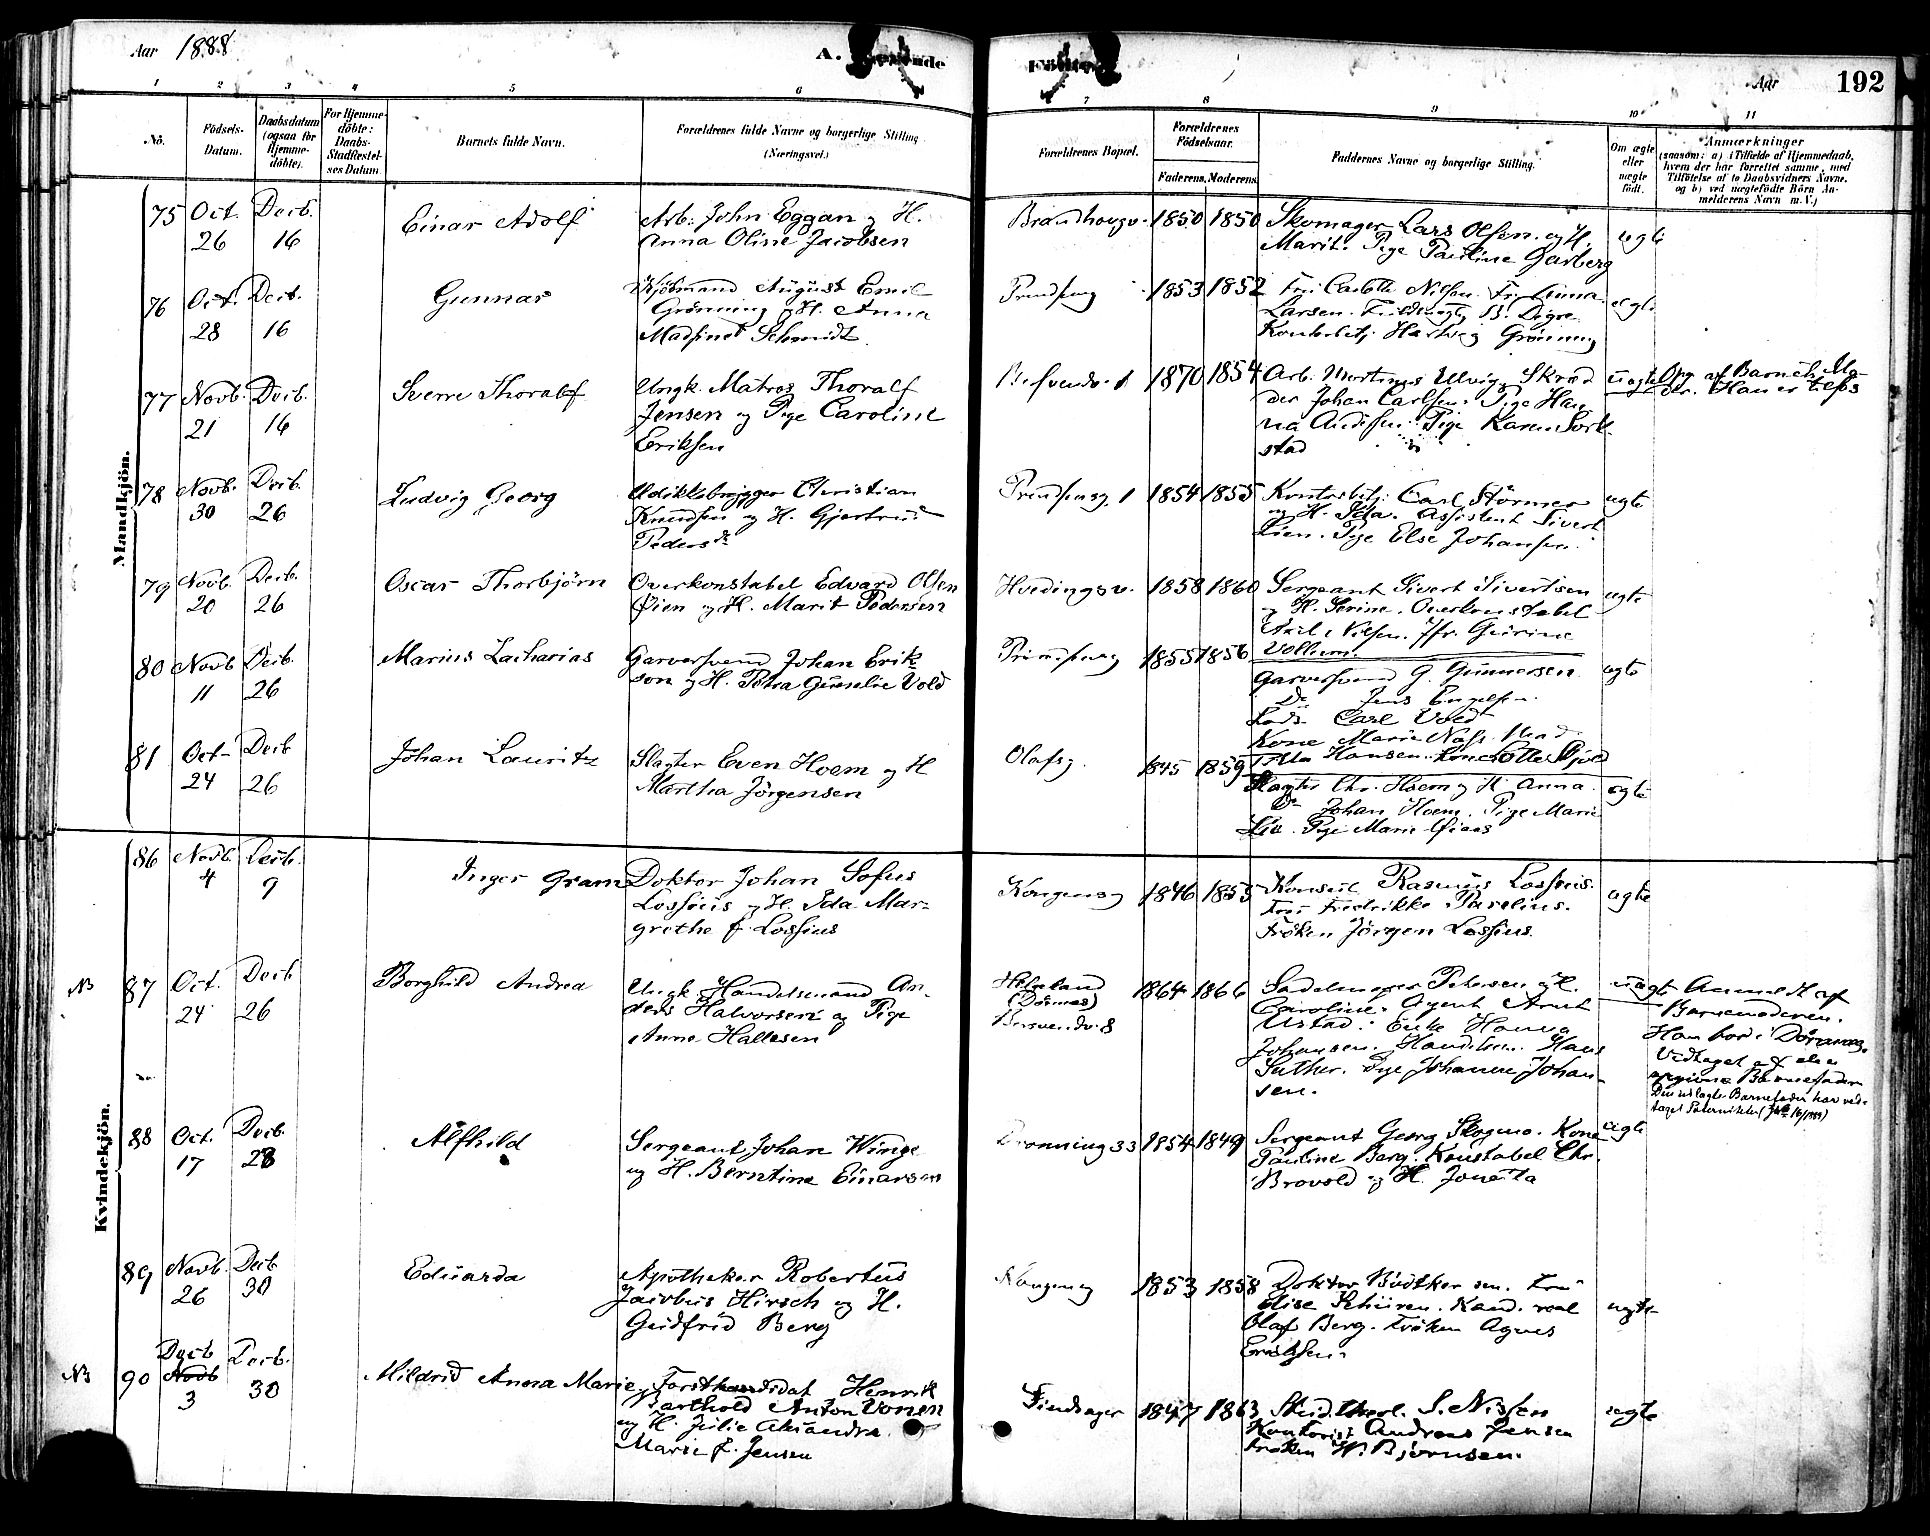 Aar 1888.
A.
Födte
Aar
192
1 2 3 4 5 6 7 8 9 10 11
No.
Födsels-Datum.
Daabsdatum (ogsaa for Hjemme-döbte).
For Hjemme-döbte: Daabs-Stadfæstelses Datum.
Barnets fulde Navn.
Forældrenes fulde Navne og borgerlige Stilling (Næringsvei.)
Forældrenes Bopæl.
Forældrenes Födselsaar.
Faderens. Moderens.
Faddernes Navne og borgerlige Stilling.
Om ægte eller uægte födt.
Anmærkninger
(saasom: a) i Tilfælde af Hjemmedaab,
hvem der har forrettet samme, med
Tilföielse af to Daabsvidners Navne,
og b) ved uægtefödte Börn An-
melderens Navn m. V.)
Mandkjön.
75 Oct. 26 Decb. 16
Einar Adolf
Arb. John Eggan og H.
Anna Oline Jacobsen
1850 1850
Skomager Lars Olsen og H.
Marit. Pige Pauline Garberg
ægte
76 Oct. 28 Decb. 16
Gunnar
Kjöbmand August Emil
Grönning og H. Anna
Schmidt
1853 1852
Larsen.
Hartvig Grönning
ægte
77 Novb. 21 Decb. 16
Sverre Thoralf
Ungk. Matros Thoralf
Jensen og Pige Caroline
Eriksen
1870 1854
Arb. Ulvig. Skræd
der Johan Carlsen. Pige Han
na Pige Karen
stad
uægte
Opg. af Barnets Mo-
der.
78 Novb. 30 Decb. 26
Ludvig Georg
Christian
Knudsen og H. Gjertrud
Pedersdr
1854 1855
Carl Störmer
og H. Ida. Assistent Sivert
Lien. Pige Else Johansen.
ægte
79 Novb. 20 Decb. 26
Oscar Thorbjörn
Overkonstabel Edvard Olsen
Øien og H. Marit Pedersen
Hvedingsv. 1858 1860
Sergeant Sivert Sivertsen
og H. Serine. Overkonstabel
Nilsen. Jfr. Gurine
Vollum
ægte
80 Novb 11 Decb. 26
Marius Zacharias
Garversvend Johan Erik-
son og H. Petra Gunelie Vold
1855 1856
Garversvend G. Gunnersen
Do Jens Engelsen
Carl Vold
Kone Marie Næss.
Hansen.
ægte
81 Oct. 24 Decb 26
Johan Lauritz
Slagter Even Hoem og H
Martha Jörgensen
Olafsg. 1845 1859
Slagter Chr. Hoem og H. Anna.
Do Johan Hoem. Pige Marie
Lio. Pige Marie Øiaas
ægte
Kvindekjön.
86 Novb. 4 Decb. 9
Inger Gram
Doktor Johan Sofus
Lossius og H. Ida Mar-
grethe f. Lossius
Kongensg 1846 1855
Konsul Rasmus Lossius.
Fru Fredrikke
Fröken Jörgen Lossius.
ægte
NB 87 Oct. 24 Decb 26
Borghild Andrea
Ungk. Handelsmand An-
ders Halvorsen og Pige
Anne Hallesen
Helgeland
(Dönnæs)
Bersvendv. 8
1864 1866
Sadelmager Petersen og H.
Caroline. Agent Arnt
Ustad. Enke Hanna
Johansen. Handelsm. Hans
Suther. Pige Johanne Johan-
sen.
uægte
Anmeldt af
Barnemoderen.
Vedtaget af den
opgivne Barnefader
Den udlagte Barnefader har ved-
taget Paterniteten
88 Oct. 17 Decb. 28
Alfhild
Sergeant Johan Winge
og H. Berntine Einarsen
Dronningg 33 1854 1849
Sergeant Georg Skogmo. Kone
Pauline Berg. Konstabel Chr.
Brovold og H. Jonetta
ægte
89 Novb. 26 Decb 30
Eduarda
Apotheker Robertus
Jacobus Hirsch og H.
Gudfrid Berg
Kongensg 1853 1858
Doktor Büdtker sen. Fru
Elise Schiiren. Kand. real
Olaf Berg. Fröken Agnes
Erichsen.
ægte
NB 90 Decb Novb 3 Decb. 30
Mildrid Anna Marie
Forstkandidat Henrik
Barthold Anton Vonen
og H. Julie Alexandra
Marie f. Jensen
1847 1863
Stud. theol. S. Nissen
Kontorist Andreas Jensen
Fröken H. Bjørnsen.
ægte